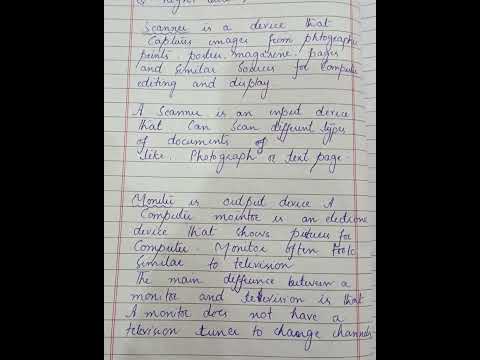 Scanner is a device that
Captures images from phtographic
prints, poster, magazine, pages
and similar Sources for Computer
editing and display
A Scanner is an input device
that Can Scan different types
of documents of
like. Photograph or text page.
Monitor is output device A
Computer monitor is an electronic
device that shows pictures for
Computer. Monitor often
Similar to television
The main diffrence between a
monitor and television is that
A monitor does not have a
television tuner to change channels